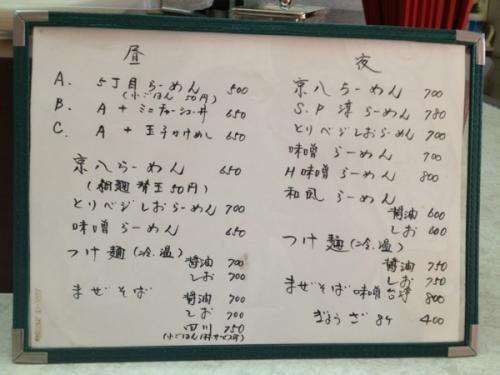 昼
A. 5丁目らーめん 500
(小ごはん 50円)
B. A + ミニチャーシュー丼 650
C. A + 玉子かけめし 650
京八らーめん 650
(細麺 替玉50円)
とりベジしおらーめん 700
味噌らーめん 650
つけ麺(冷、温)
醤油 700
しお 700
まぜそば
醤油 700
しお 700
四川 750
夜
京八らーめん 700
S.P 淳らーめん 780
とりベジしおらーめん 700
味噌らーめん 700
H味噌らーめん 800
和風らーめん
醤油 600
しお 600
つけ麺(冷、温)
醤油 750
しお 750
まぜそば 味噌 台湾 800
ぎょうざ 8ケ 400